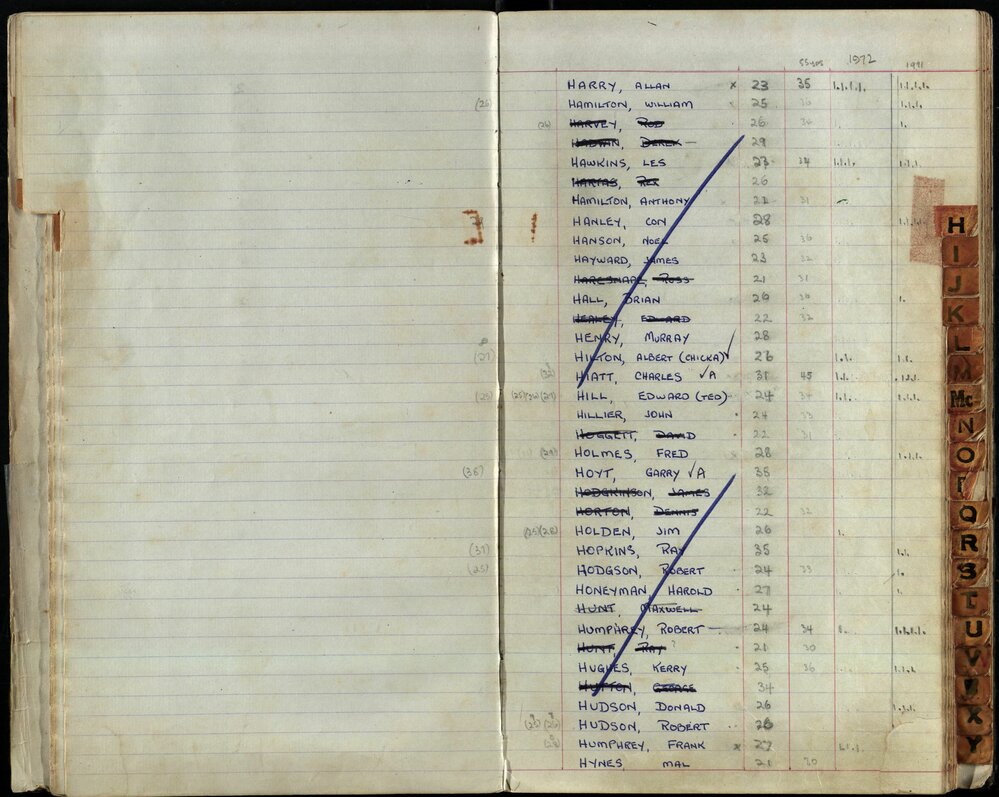 1972 1971
HARRY, ALLAN x 23 35
(26) HAMILTON, WILLIAM 25 36
HARVEY, ROD 26 36
HADWIN, DEREK — 29
HAWKINS, LES 23 34
26
HAMILTON, ANTHONY 21 31
HANLEY, CON 28
HANSON, NOEL 25 36
HAYWARD, JAMES 23 32
HARGSNAPE, ROSS 21 31
HALL, BRIAN 26 36
HEALEY, EDWARD 22 32
HENRY, MURRAY 28
(27) HILTON, ALBERT (CHICKA) √ 26
HIATT, CHARLES √A 31 45
(25) HILL, EDWARD (TED) 24 34
HILLIER, JOHN 24 33
HOGGETT, DAVID 22 31
(29) HOLMES, FRED 28
(36) HOYT, GARRY √A 35
HODGKINSON, JAMES 32
HORTON, DENNIS 22 32
(25)(26) HOLDEN, JIM 26
(37) HOPKINS, RAY 35
(25) HODGSON, ROBERT 24 33
HONEYMAN, HAROLD 27
HUNT, MAXWELL 24
HUMPHREY, ROBERT — 24 34
HUNT, RAY ? 21 30
HUGHES, KERRY 25 36
HUTTON, GEORGE 34
HUDSON, DONALD 26
HUDSON, ROBERT 26
(28) HUMPHREY, FRANK x 27
HYNES, MAL 21 30
H
I
J
K
L
M
Mc
N
O
P
Q
R
S
T
U
V
X
Y